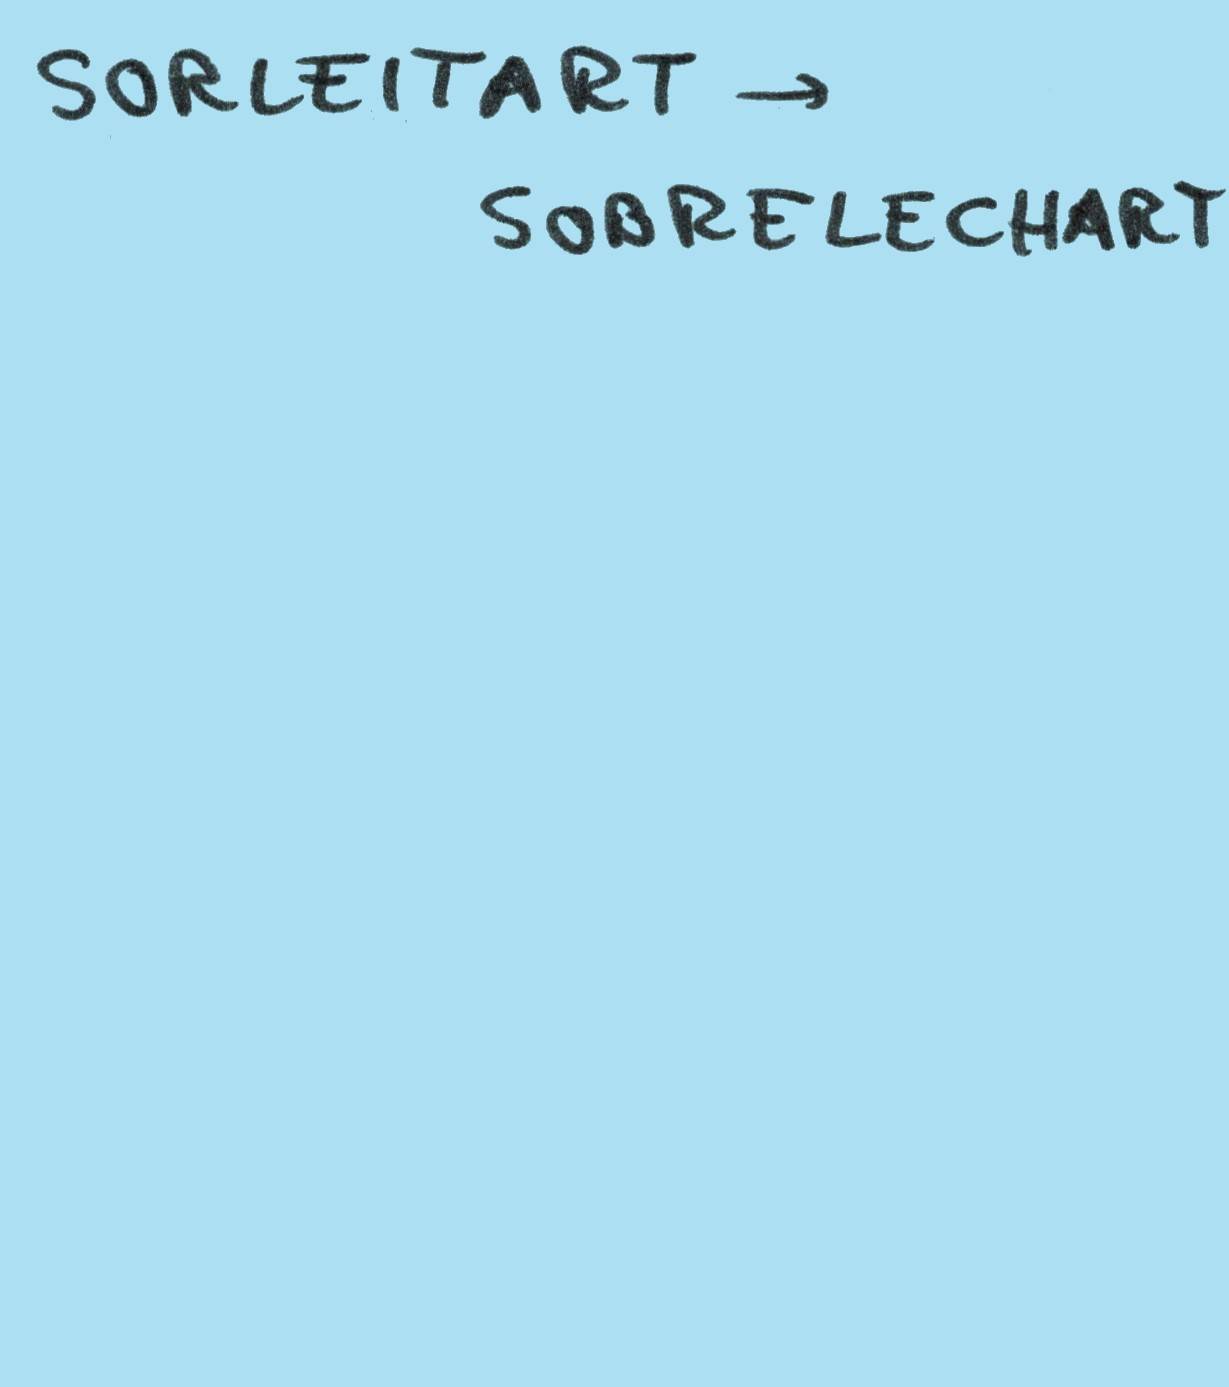 SORLEITART →
SOBRELECHART